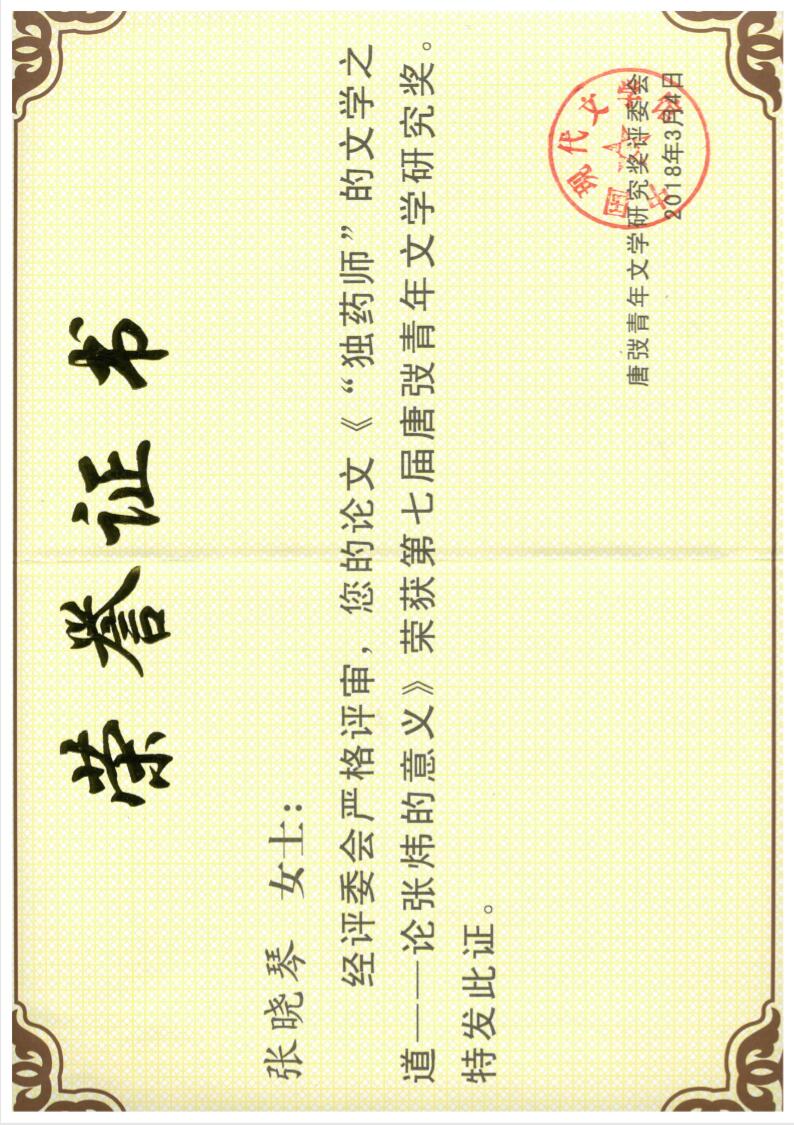 荣誉证书
张晓琴 女士：
经评委会严格评审，您的论文《“独药师”的文学之
道——论张炜的意义》荣获第七届唐弢青年文学研究奖。
特发此证。
唐弢青年文学研究奖评委会
2018年3月4日